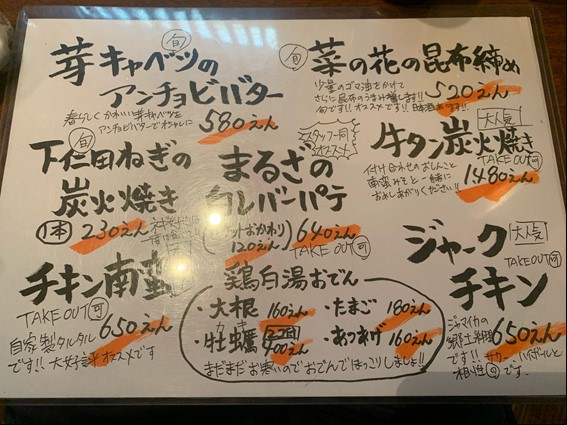 旬
芽キャベツの
アンチョビバター
春らしくかわいい芽キャベツを
アンチョビバターでオシャレに
580えん
旬
菜の花の昆布締め
少量のゴマ油をかけて
さらに昆布のうまみ増します!!
旬です!!オススメです!!日本酒
520えん
旬
下仁田ねぎの
炭火焼き
1本
230えん
スタッフ一同
オススメ
まるざの
白レバーパテ
おかわり
120えん)
640えん
TAKE OUT 可
大人気
牛タン炭火焼き
TAKE OUT 可
付け合わせのおしんこと
南蛮みそと一緒に
お召しあがりください!!
1480えん
チキン南蛮
TAKE OUT 可
650えん
自家製タルタル
です!!大好評オススメです
鶏白湯おでん
・大根 160えん ・たまご 180えん
カキ
・牡蠣 2コ 400えん ・あつあげ 160えん
まだまだお寒いのでおでんでほっこりしましょ!!
ジャーク
大人気
TAKE OUT 可
チキン
ジャマイカの
郷土料理
です!!サワー、ハイボールと
相性◎です。
650えん